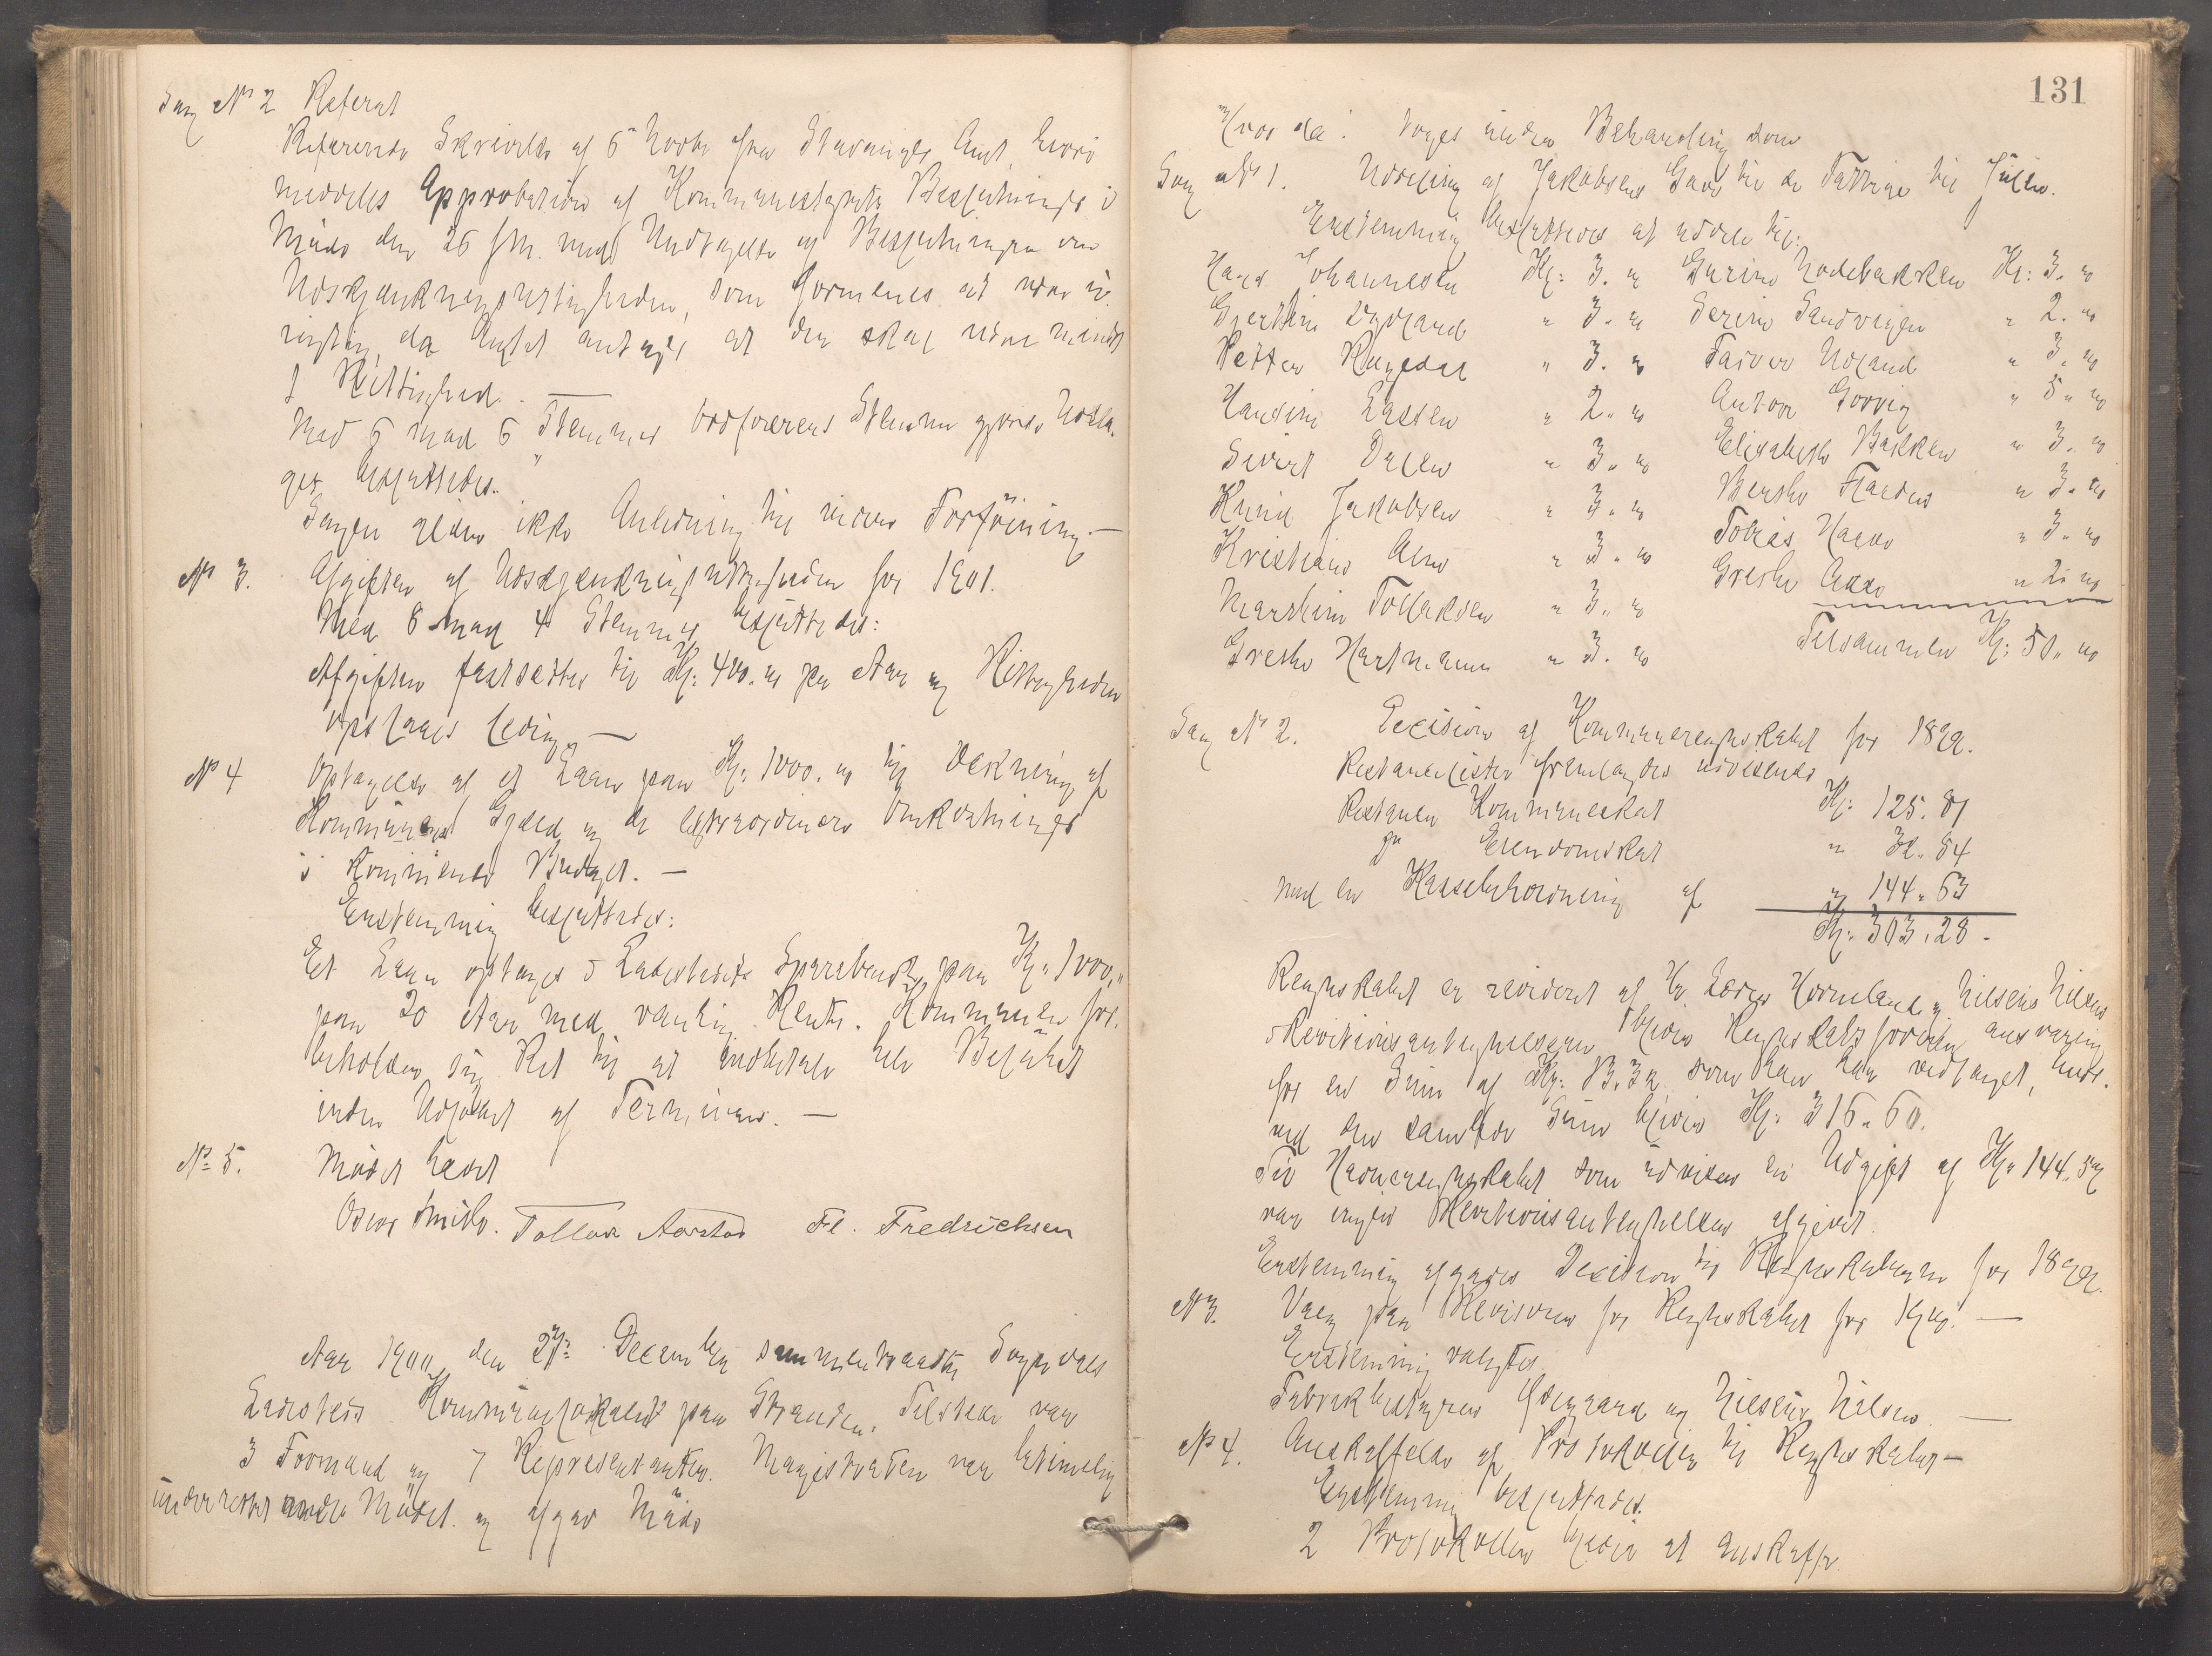 Sag No 2 Referat
Refererede Skrivelse af 5te Novbr fra Stavanger Amt, hvori
meddeles Approbation af Kommunestyrets Beslutninger i
Møde den 26 f.M. med Undtagelse af Beslutningen om
Udskjænkningsrettigheden, som formenes at være u-
rigtig, da Amtet antager at der skal være mindst
1 Rettighed. —
Med 6 mod 6 Stemmer Ordførerens Stemme gjorde Udsla-
get besluttedes.
Sagen giver ikke Anledning til videre Forföining. —
No 3. Afgiften af Udskjænkningsrettigheden for 1901.
Med 8 mod 4 Stemmer besluttedes:
Afgiften fastsættes til Kr: 400.00 pr Aar og Rettigheden
opslaaes ledig. —
No 4 Optagelse af et Laan paa Kr: 1000.00 til Dekning af
Kommunens Gjæld og de extraordinære Omkostninger
i Kommunens Budget. —
Enstemmig besluttedes:
Et Laan optages i Ladestedets Sparebank paa Kr. 1000,"
paa 20 Aar med vanlig Rente. Kommunen for-
beholder sig Ret til at indbetale hele Beløbet
inden Udløbet af Terminen. —
No 5. Mødet hævet
Oscar Smith. Tollak Aarstad Fl. Fredrichsen
Aar 1900 den 27de December sammentraadte Sogndals
Ladesteds Kommunelokalet paa Stranden. Tilstede var
3 Formænd og 7 Repræsentanter. Magistraten var betimelig
underrettet om Mødet og afgav Møde
131
Hvor da: toges under Behandling som
Sag No 1. Uddeling af Jakobsens Gave til de Fattige til Julen.
Enstemmig besluttedes at uddele til:
Hans Johannesen Kr: 3.00 Gurine Nodebakken Kr: 3.00
Gjertine Dydland " 3.00 Serine Sandvigen " 2.00
Petter Rægedal " 3.00 Taever Ueland " 3.00
Hansine Larsen " 2.00 Anton Gorvig " 5.00
Sivert Dalen " 3.00 Elisabeth Bakken " 3.00
Knud Jakobsen " 3.00 Berthe Flaedus " 3.00
Kristiane Alne " 3.00 Tobias Hauke " 3.00
Marthine Tollaksen " 3.00 Grethe Aase " 2.00
Grethe Hartmann " 3.00 Tilsammen Kr: 50.00
Sag No 2. Decision af Kommuneregnskabet for 1899.
Restancelister fremlagdes udvisende
Restance Kommuneskat Kr: 125.81
Do Eiendomsskat " 32.84
med en Kassebeholdning af " 144.63
Kr: 303.28.
Regnskabet er revideret af Hr. Hovland og Nilsens Nilsen
i Revisionsantegnelserne blev Regnskabsføreren ansvarlig
for en Sum af Kr: 13.32 som han har vedtaget, hvor-
ved den samlede Sum bliver Kr: 316.60.
Til Havneregnskabet som udviser en Udgift af Kr: 144.59
var ingen Revisionsantegnelser afgivet.
Enstemmig afgaves Decision til Regnskaberne for 1899.
No 3. Valg paa Revisorer for Regnskabet for 1900. —
Enstemmig valgtes.
Fabrikbestyrer Ødegaard og Nilsens Nilsen. —
No 4. Anskaffelse af Protokoller til Regnskabet —
Enstemmig besluttedes.
2 Protokoller bliver at anskaffe.